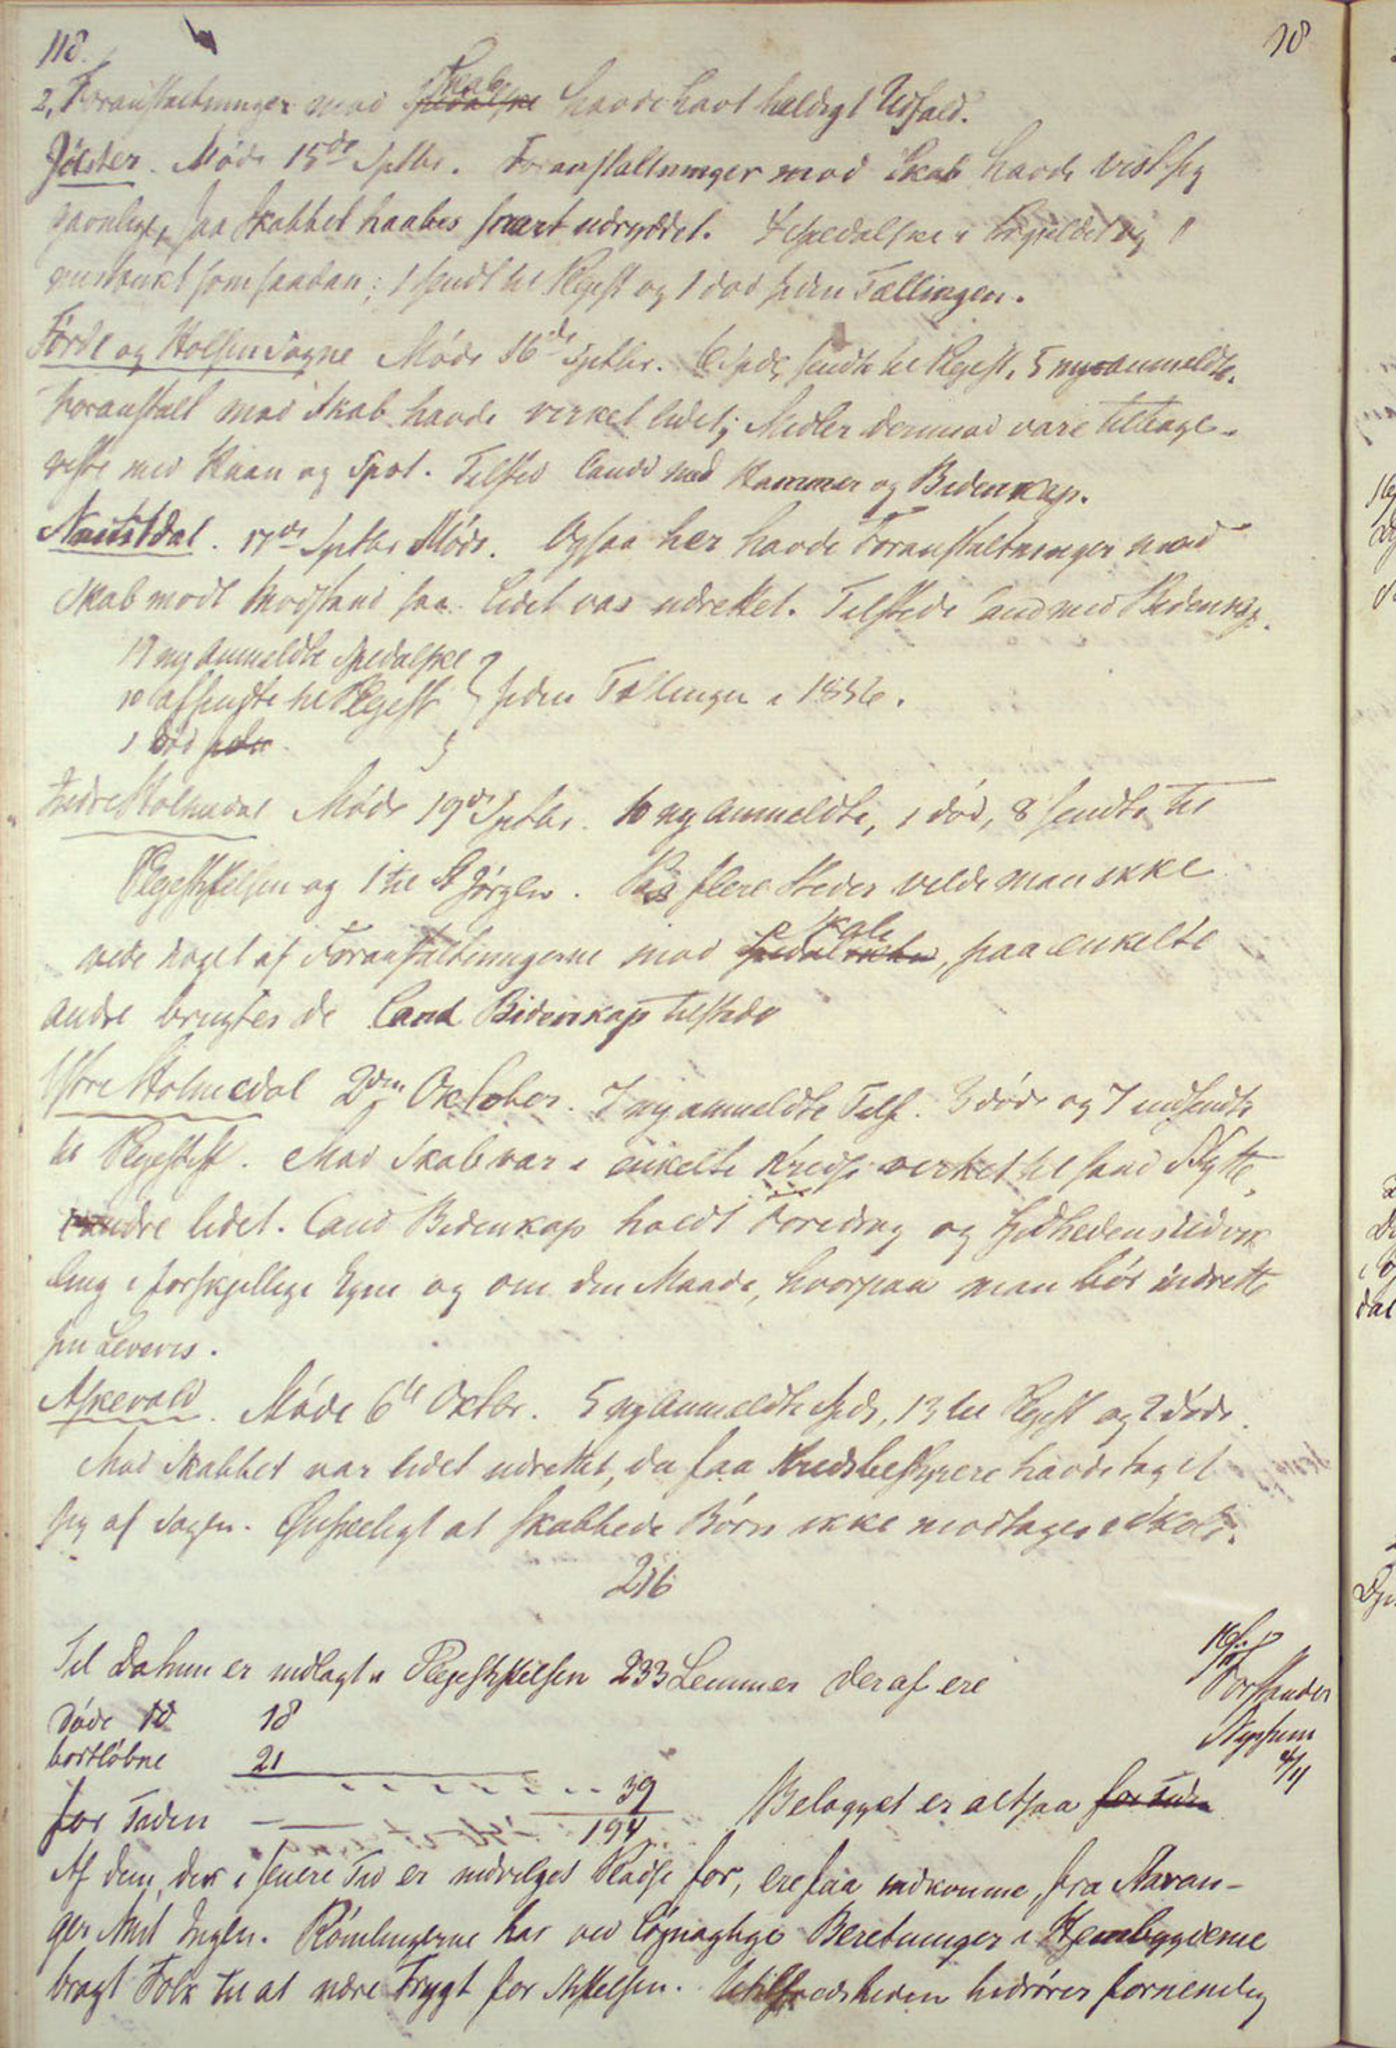 118.
18
2, Foranstaltninger mod Skab spedalske havde havt heldigt Udfald.
Jölster. Möde 15de Septbr. Foranstaltninger mod Skab havde vist sig
gavnlige, saa Skabbet haabes snart udryddet. 4 spedalske og 1
mistænkt som saadan; 1 sendt til Plejest og 1 död siden Tællingen.
Förde og Holsen Sogne Möde 16de Septbr. 6 spdse sendte til Plejest, 5 nyanmeldte.
Foranstalt mod Skab havde virket lidet; Midler derimod vare tildeels
med Haan og Spot. Tilsted Cand med Hammer og Bidenkap.
Naustdal. 17de Septbr Möde. Ogsaa her havde Foranstaltninger mod
Skab mödt Modstand saa lidet var udrettet. Tilstede Cand med Bidenkap.
17 ny anmeldte Spedalske
10 afsendte til Plejest } siden Tællingen i 1856.
1 död siden
Indre Holmedal Möde 19de Septbr. 10 ny anmeldte, 1 död, 8 sendte til
Plejestiftelsen og 1 til St Jörgen. Paa flere Steder vilde man ikke
vide noget af Foranstaltningerne mod Skab spedalskhed, paa enkelte
andre brugtes de Cand Bidenkap tilstede
Ytre Holmedal 2den Oktober. 7 nyanmeldte Tilf. 3 döde og 7 indsendte
til Plejestift. Mod Skab var i enkelte Kredse virket til saad Nytte,
i andre lidet. Cand Bidenkap holdt Foredrag og Sygdommens Udvik
ling i forskjellige Egne og om den Maade, hvorpaa man bör indrette
sin Levevis.
Askevold. Möde 6te Oktbr. 5 ny anmeldte Speds, 13 til Plejest og 2 döde.
Mod Skabbet var lidet udrettet, da faa Kredsbestyrere havde taget
sig af Sagen. Önskeligt at skabbede Börn ikke modtages i Skole.
216
Til Datum er indlagt i Plejestiftelsen 233 Lemmer deraf ere
Forstander
Nyssum
4/11
Döde 18 18
bortlöbne 21
39
for Tiden 194 Belægget er altsaa for Tiden
Af dem, der i senere Tid er udvelges Pladse for, ere faa indkomne, fra Stavan-
ger Amt Ingen. Römlingerne har ved lögnagtige Beretninger i Hjembygderne
bragt Folk til at nære Frygt for Stiftelsen. Utilfredsheden hidrörer fornemlig